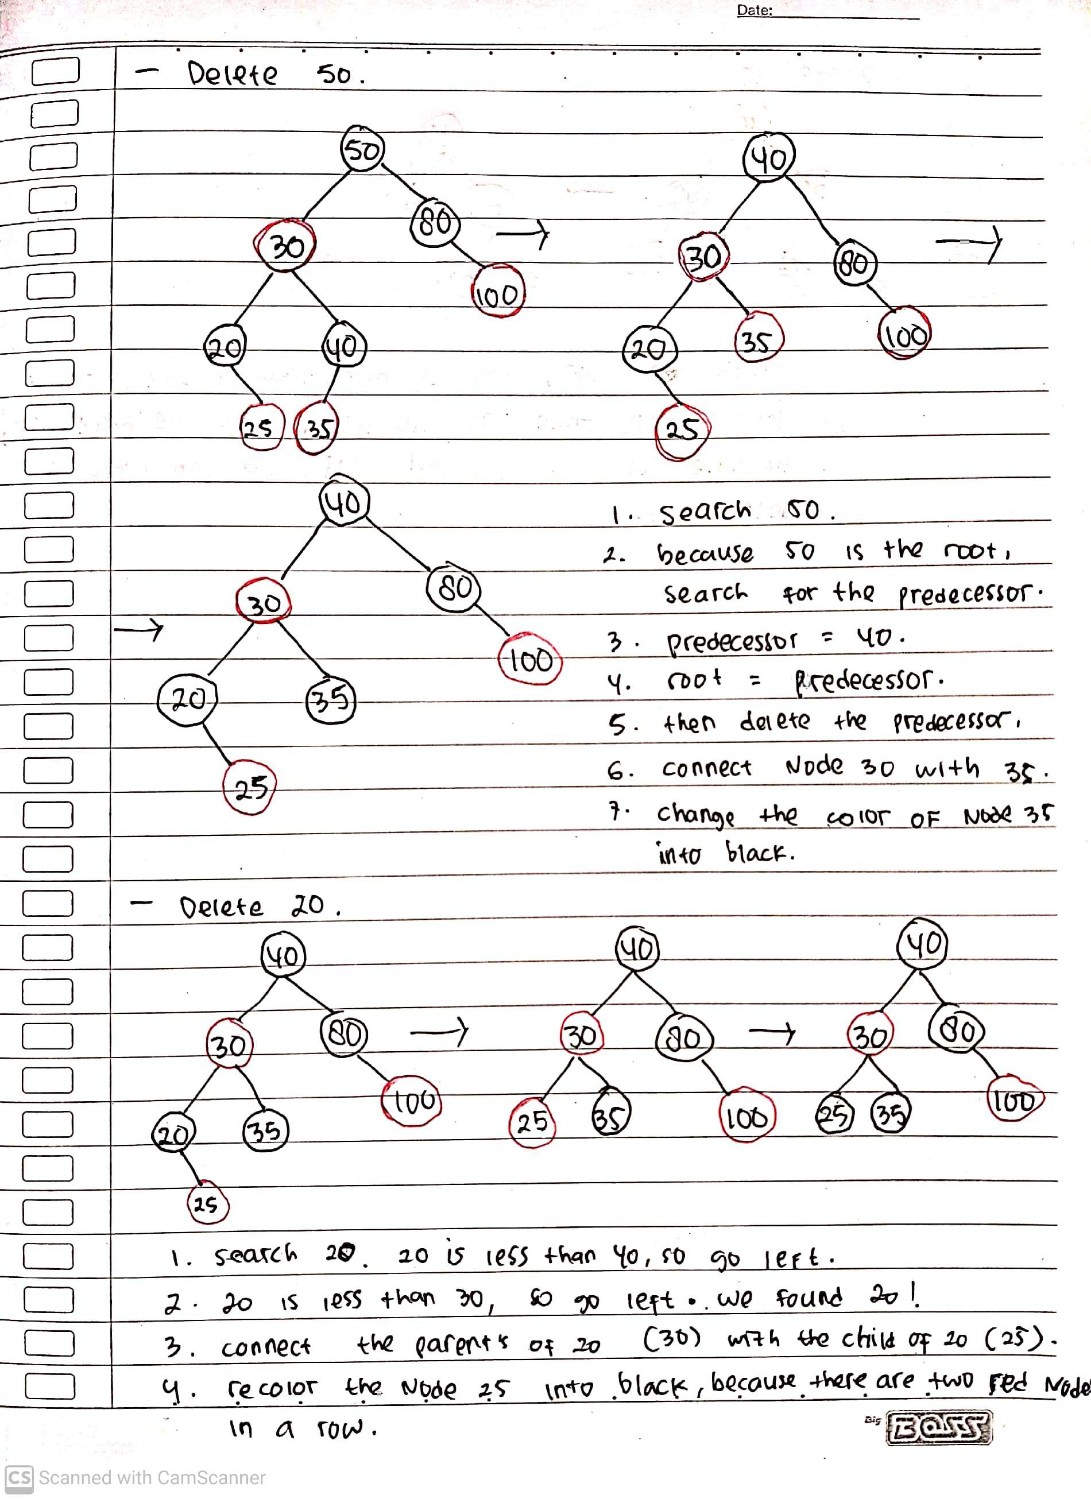 Date:
- Delete 50.
50 40
30 80 30 80
100 100
20 40 20 35
25 35 25
40
30 80
100
20 35
25
1. search 50.
2. because 50 is the root,
search for the predecessor.
3. predecessor = 40.
4. root = predecessor.
5. then delete the predecessor.
6. connect Node 30 with 35.
7. change the color of Node 35
into black.
- Delete 20.
40 40 40
30 80 30 80 30 80
100 100 100
20 35 25 35 25 35
25
1. search 20. 20 is less than 40, so go left.
2. 20 is less than 30, so go left. we found 20!
3. connect the parent's of 20 (30) with the child of 20 (25).
4. recolor the Node 25 into black, because there are two red Node
in a row.
Big BOSS
CS Scanned with CamScanner